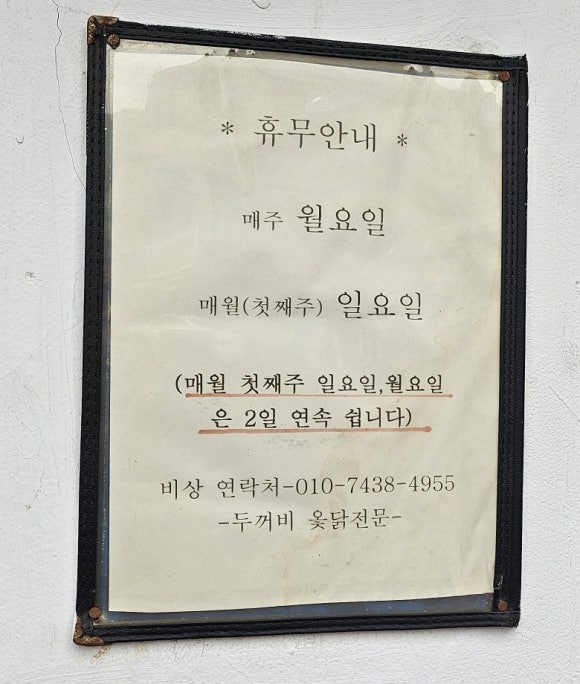 * 휴무안내 *
매주 월요일
매월(첫째주) 일요일
(매월 첫째주 일요일,월요일
은 2일 연속 쉽니다)
비상 연락처-010-7438-4955
-두꺼비 옻닭전문-